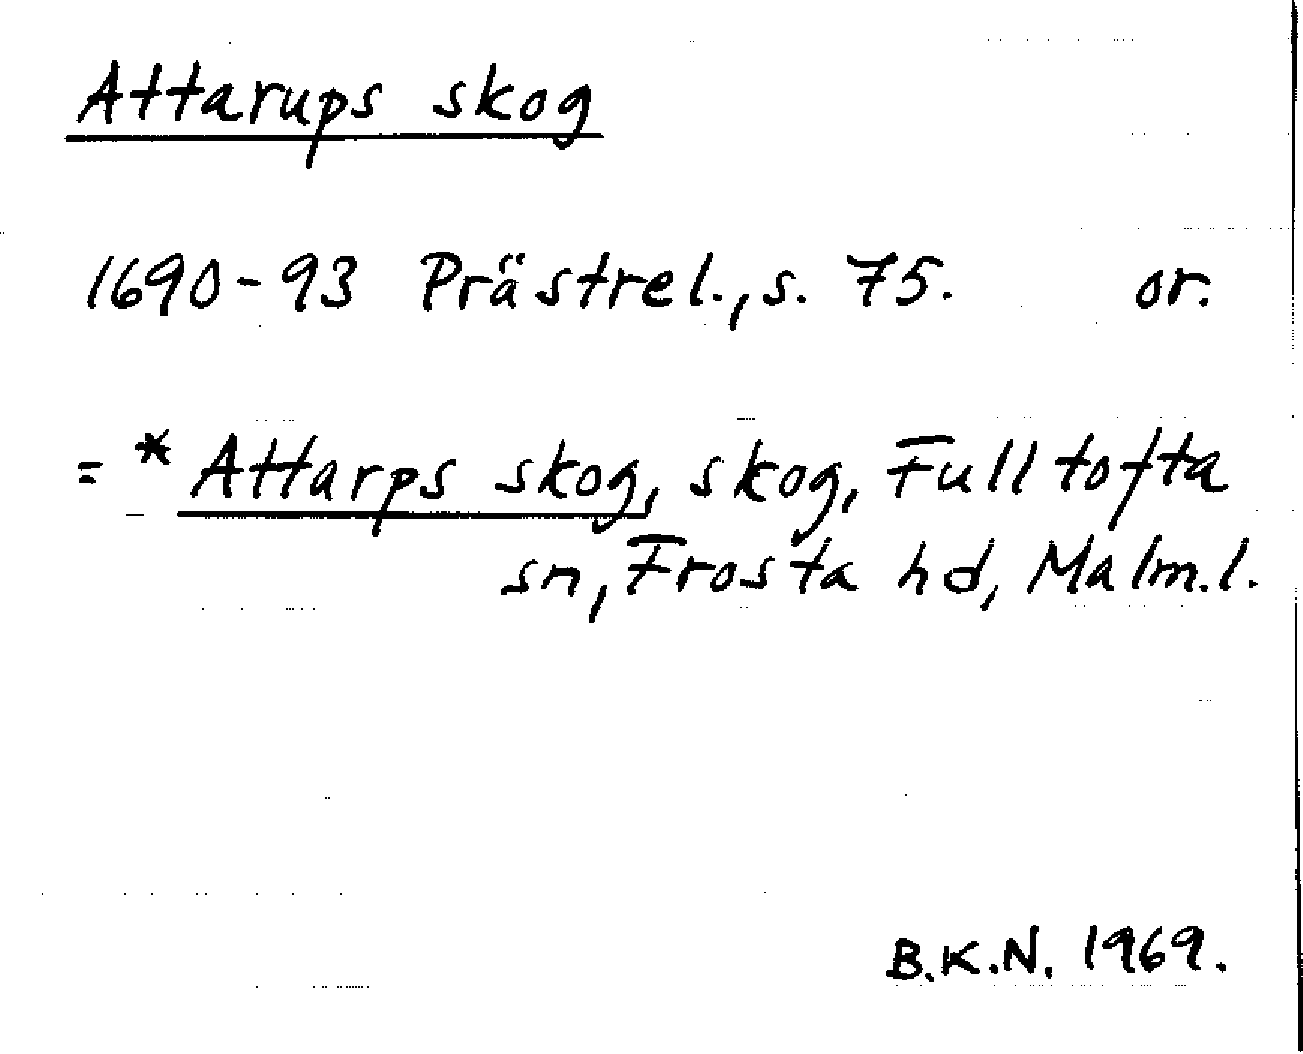 Attarups skog
1690-93 Prästrel., s. 75. or.
= * Attarps skog, skog, Fulltofta
sn, Frosta hd, Malm.l.
B.K.N. 1969.